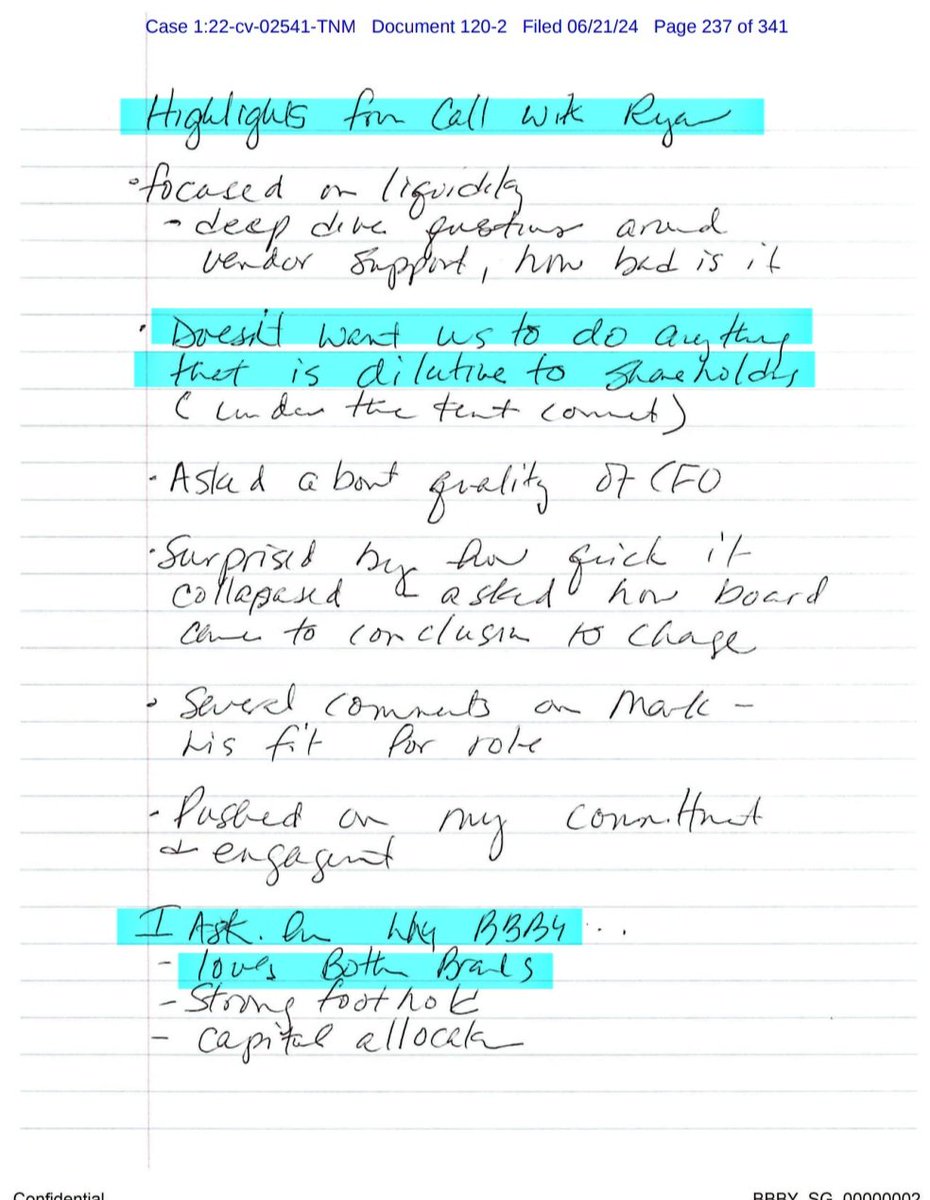 Case 1:22-cv-02541-TNM Document 120-2 Filed 06/21/24 Page 237 of 341
Highlights from Call with Ryan
• focused on liquidity
- deep dive questions around
vendor support, how bad is it
• Doesn't want us to do anything
that is dilutive to shareholders
(under the tent comment)
• Asked about quality of CFO
• Surprised by how quick it
collapased & asked how board
came to conclusion to change
• Several comments on Mark -
his fit for role
• Pushed on my committment
& engagement
I Ask. him why BBBY...
- loves Both Brands
- Strong foothold
- capital allocator
Confidential
BBBY_SG_00000002